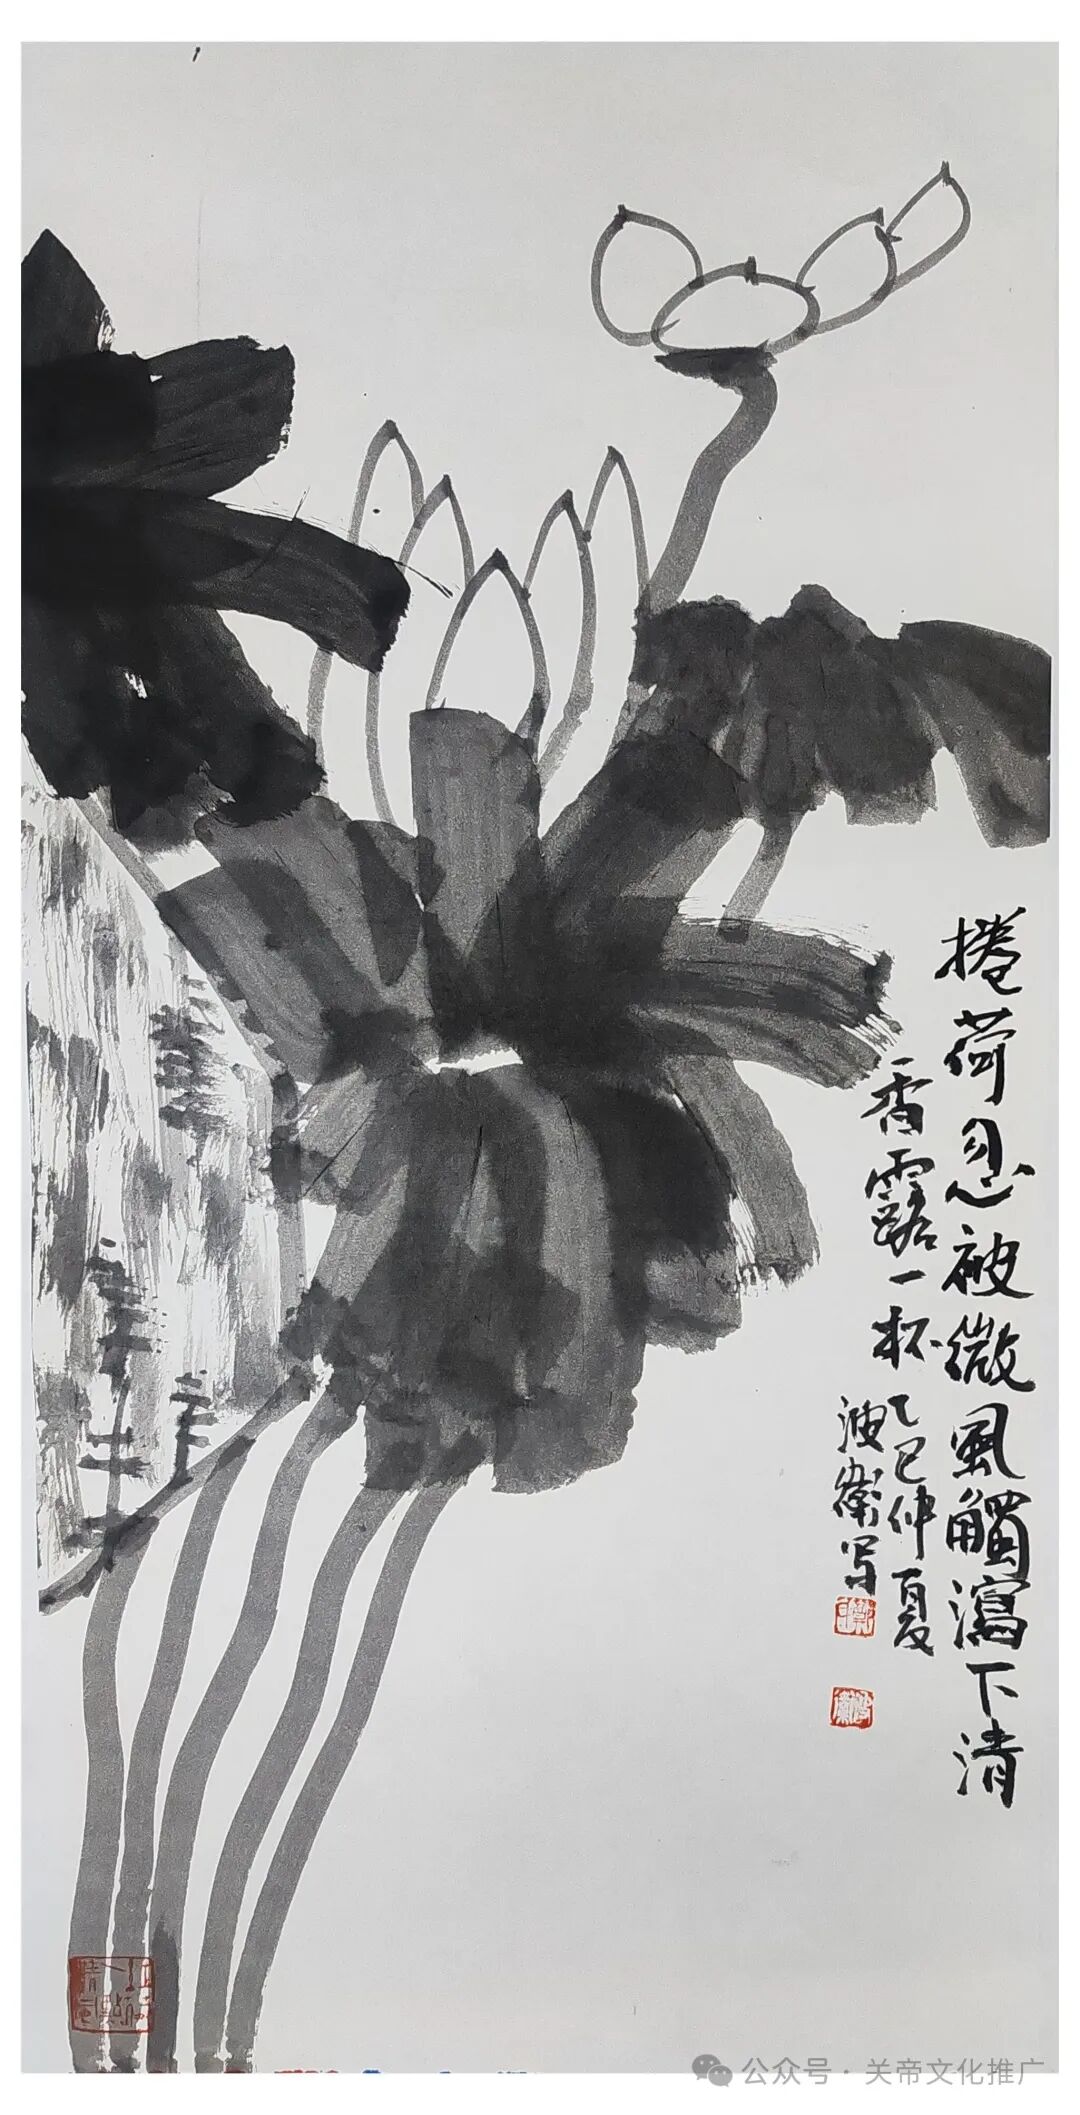 捲荷忽被微風觸瀉下清
香露一杯
乙巳仲夏
波衛写
公众号·关帝文化推广